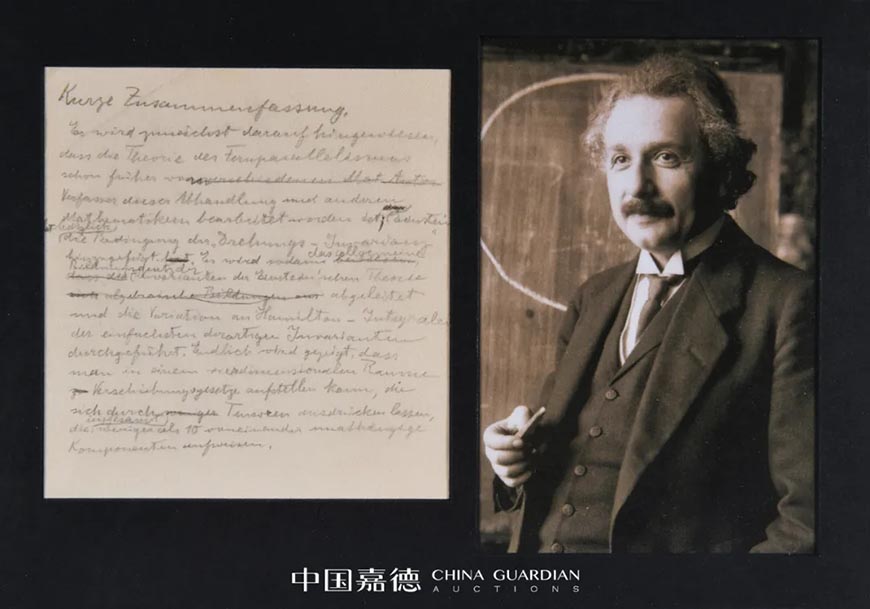 Kurze Zusammenfassung.
Es wird zunächst darauf hingewiesen,
dass die Theorie des Fernparallelismus
schon früher von verschiedenen Mat. Autor
Verfasser dieser Abhandlung und anderen
Mathematikern bearbeitet worden ist,
die Bedingung der „Drehungs-Invarianz"
das allgemeine
hinzugefügt hat. Es wird sodann
Invarianten der Einstein'schen Theorie
sich algebraische Bildungen aus abgeleitet
und die Variation an Hamilton-Integralen
der einfachsten derartigen Invarianten
durchgeführt. Endlich wird gezeigt, dass
man in einem dreidimensionalen Raume
Verschiebungsgesetze aufstellen kann, die
sich durch weniger Tensoren ausdrücken lassen,
insgesamt
die weniger als 10 voneinander unabhängige
Komponenten aufweisen.
中国嘉德 CHINA GUARDIAN
AUCTIONS